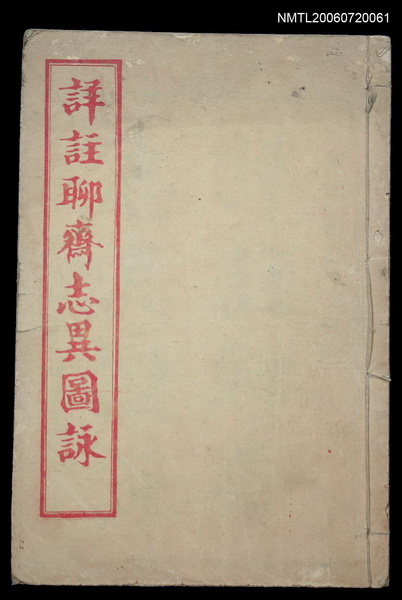 NMTL20060720061
詳註聊齋志異圖詠